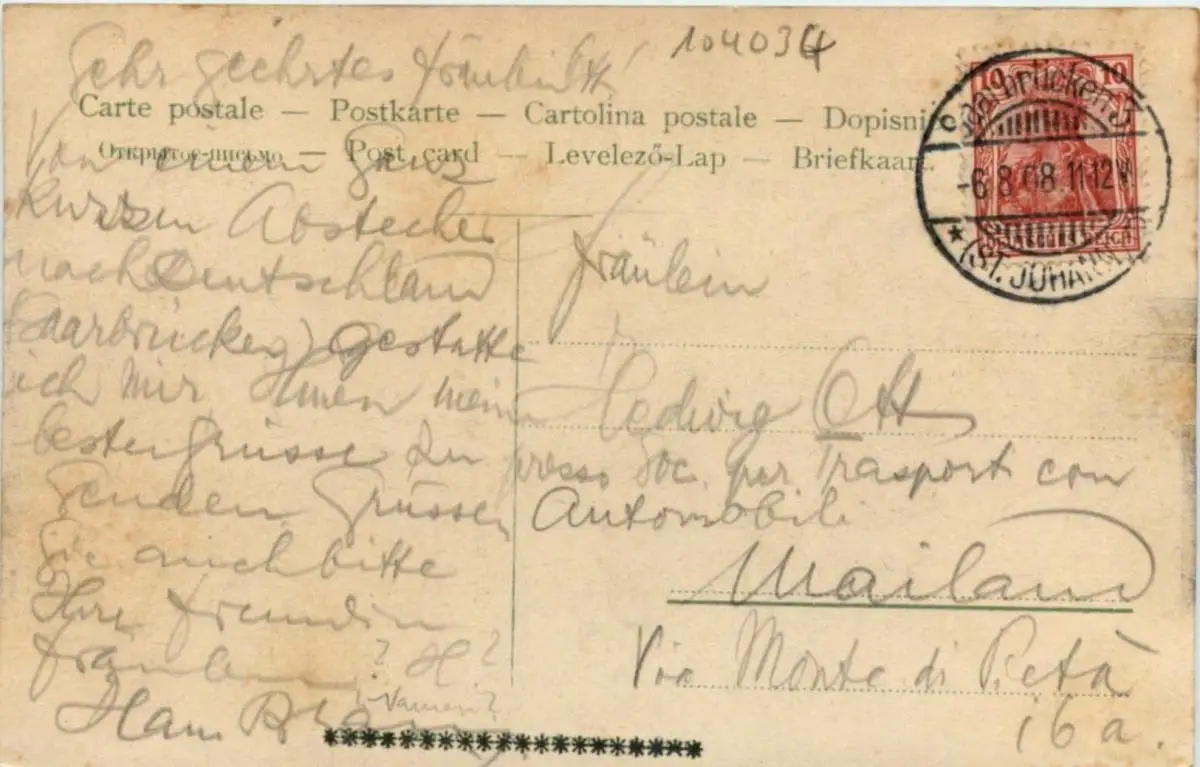 104034
Sehr geehrtes Fräulein Ott!
Carte postale — Postkarte — Cartolina postale — Dopisni
Открытое письмо — Post card — Levelező-Lap — Briefkaart
Von einem ganz
kurzen Abstecher
nach Deutschland
(Saarbrücken) gestatte
ich mir Ihnen meine
besten Grüsse zu
senden Grüssen
Sie auch bitte
Ihre Freundin
Fräulein ? H ?
Namen?
Hans
******************
Saarbrücken 3
-6.8.08.11-12V.
* (ST. JOHANN)
10 10
REICH
Fräulein
Hedwig Ott
presso Soc. per Trasporti con
Automobili
Mailand
Via Monte di Pietà
16 a.